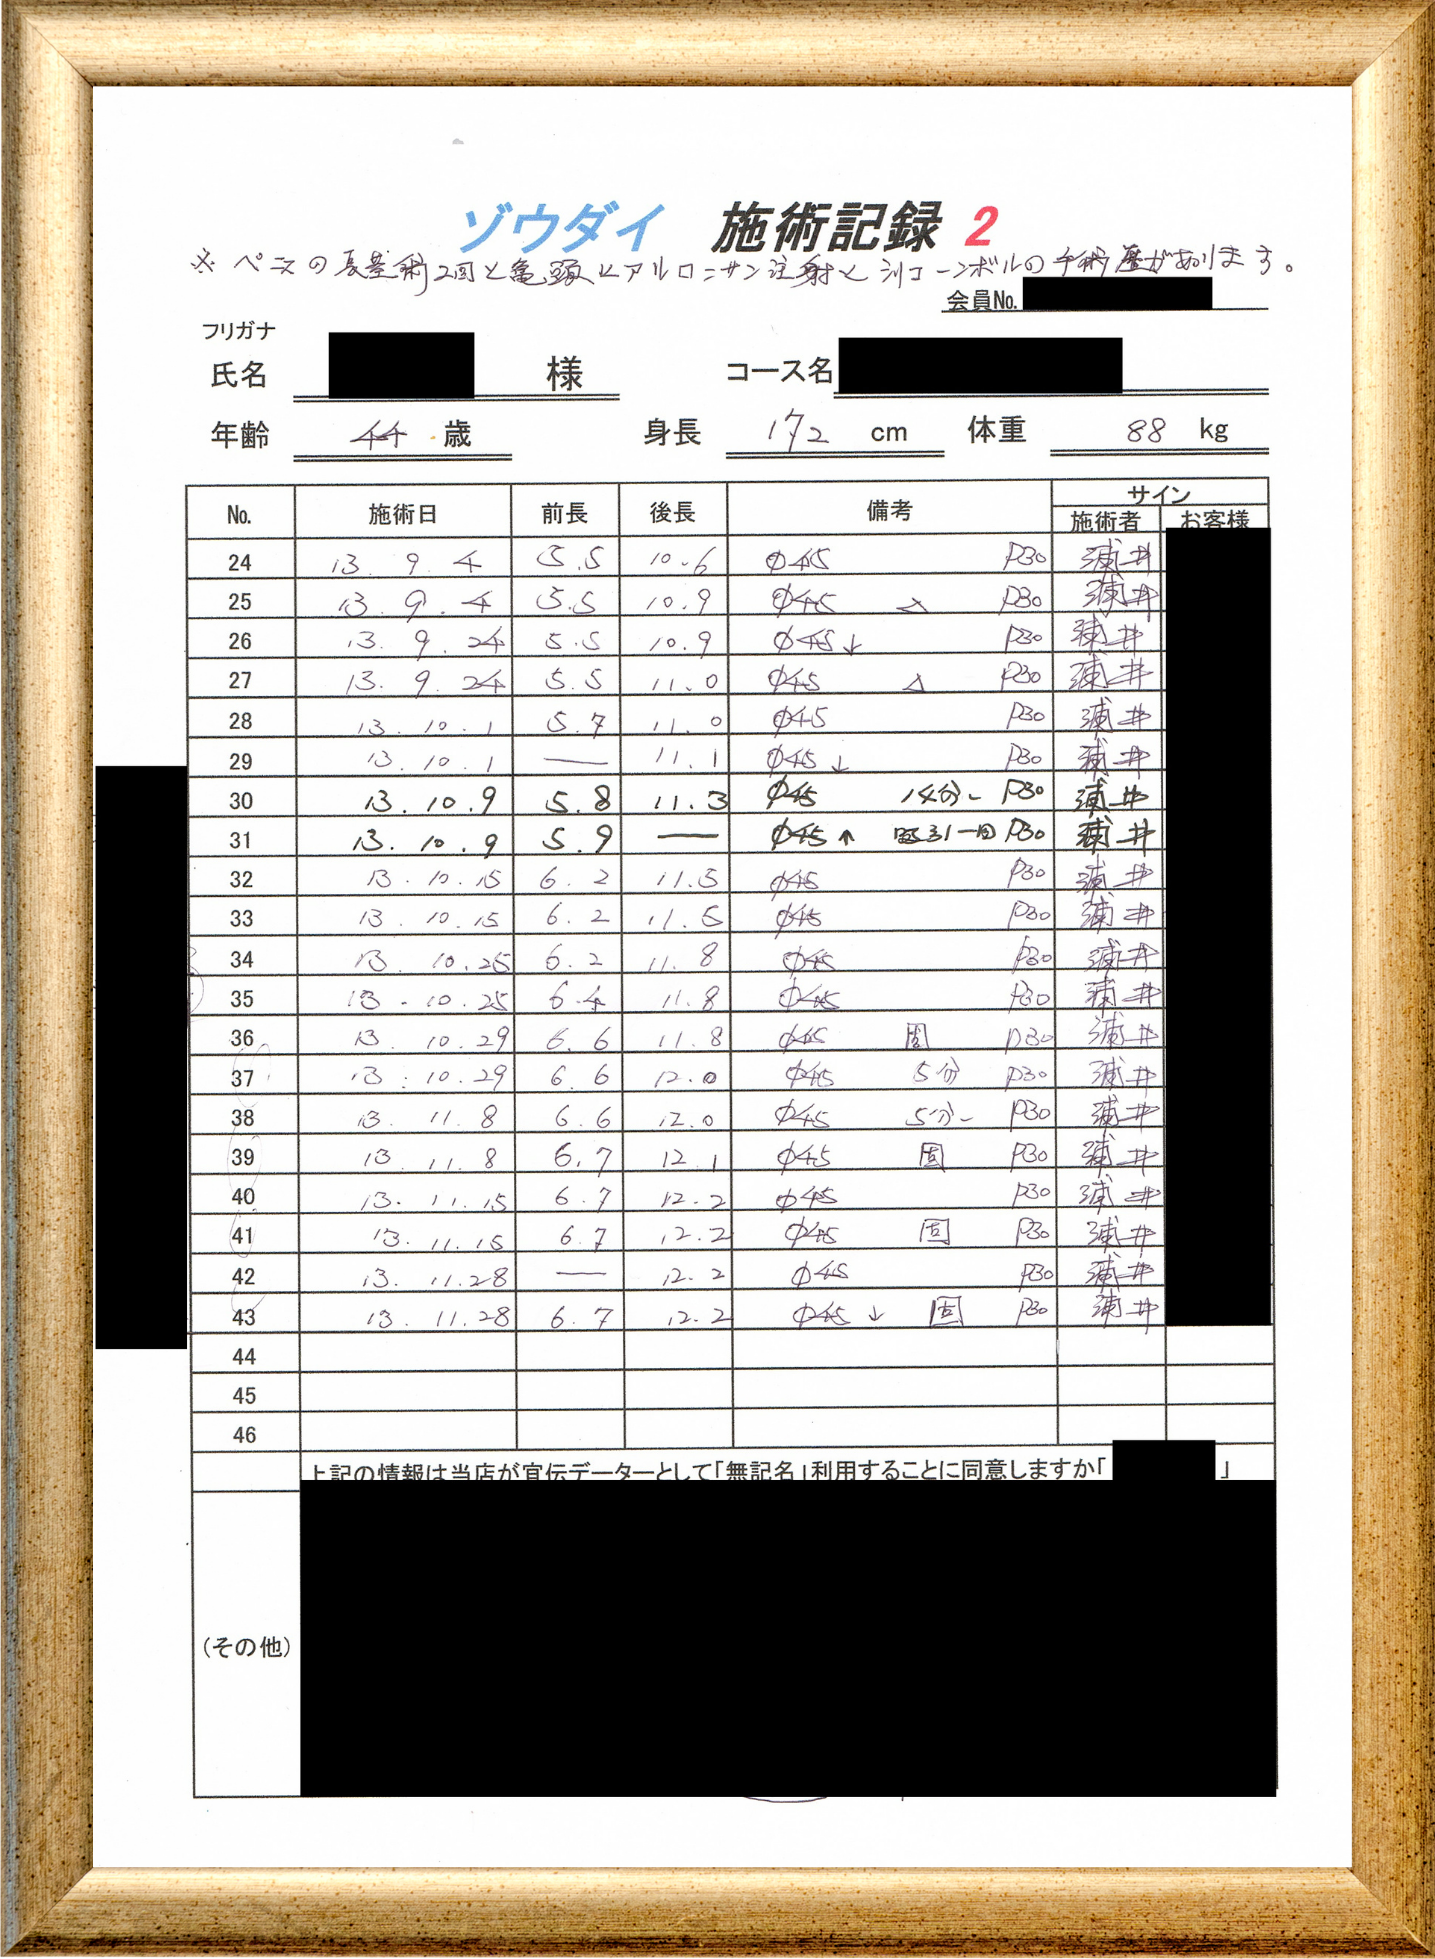 ゾウダイ 施術記録 2
※ ペニスの長茎術2回と亀頭ヒアルロニサン注射とシリコーンボルの手術歴があります。
会員No.
フリガナ
氏名 様 コース名
年齢 44 歳 身長 172 cm 体重 88 kg
No. 施術日 前長 後長 備考 サイン
施術者 お客様
24 13. 9. 4 5.5 10.6 φ45 P30 浦井
25 13. 9. 4 5.5 10.9 φ45 △ P30 浦井
26 13. 9. 24 5.5 10.9 φ45↓ P30 浦井
27 13. 9. 24 5.5 11.0 φ45 △ P30 浦井
28 13. 10. 1 5.7 11.0 φ45 P30 浦井
29 13. 10. 1 — 11.1 φ45↓ P30 浦井
30 13. 10. 9 5.8 11.3 φ45 14分~ P30 浦井
31 13. 10. 9 5.9 — φ45↑ 一回 P30 浦井
32 13. 10. 15 6.2 11.5 φ45 P30 浦井
33 13 10. 15 6.2 11.5 φ45 P30 浦井
34 13. 10. 25 6.2 11.8 φ45 P30 浦井
35 13. 10. 25 6.4 11.8 φ45 P30 浦井
36 13. 10. 29 6.6 11.8 φ45 固 P30 浦井
37 13. 10. 29 6.6 12.0 φ45 5分 P30 浦井
38 13. 11. 8 6.6 12.0 φ45 5分~ P30 浦井
39 13. 11. 8 6.7 12.1 φ45 固 P30 浦井
40 13. 11. 15 6.7 12.2 φ45 P30 浦井
41 13. 11. 15 6.7 12.2 φ45 固 P30 浦井
42 13. 11. 28 — 12.2 φ45 P30 浦井
43 13. 11. 28 6.7 12.2 φ45↓ 固 P30 浦井
44
45
46
上記の情報は当店が宣伝データーとして「無記名」利用することに同意しますか「 」
(その他)